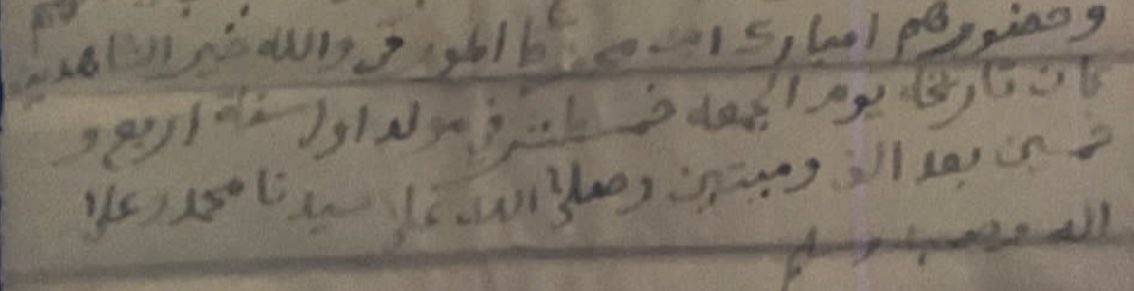 وحضورهم امبارك ابن محمد المورقي والله خير الشاهدين
كان تاريخه يوم الجمعه خمسة عشر في مولد اول سنة اربع و
خمسين بعد الف وميتين وصلى الله على سيدنا محمد وعلى
اله وصحبه وسلم